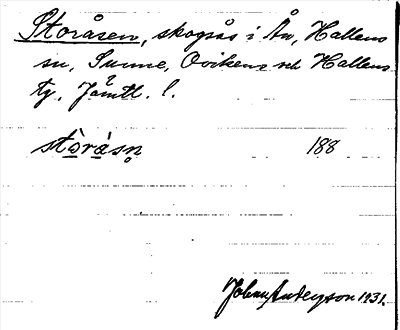 Storåsen, skogsås i Ån, Hallens
sn, Sunne, Ovikens och Hallens
tg, Jämtl. l.
stòrásn̥ 188
Johan Anderson 1931.